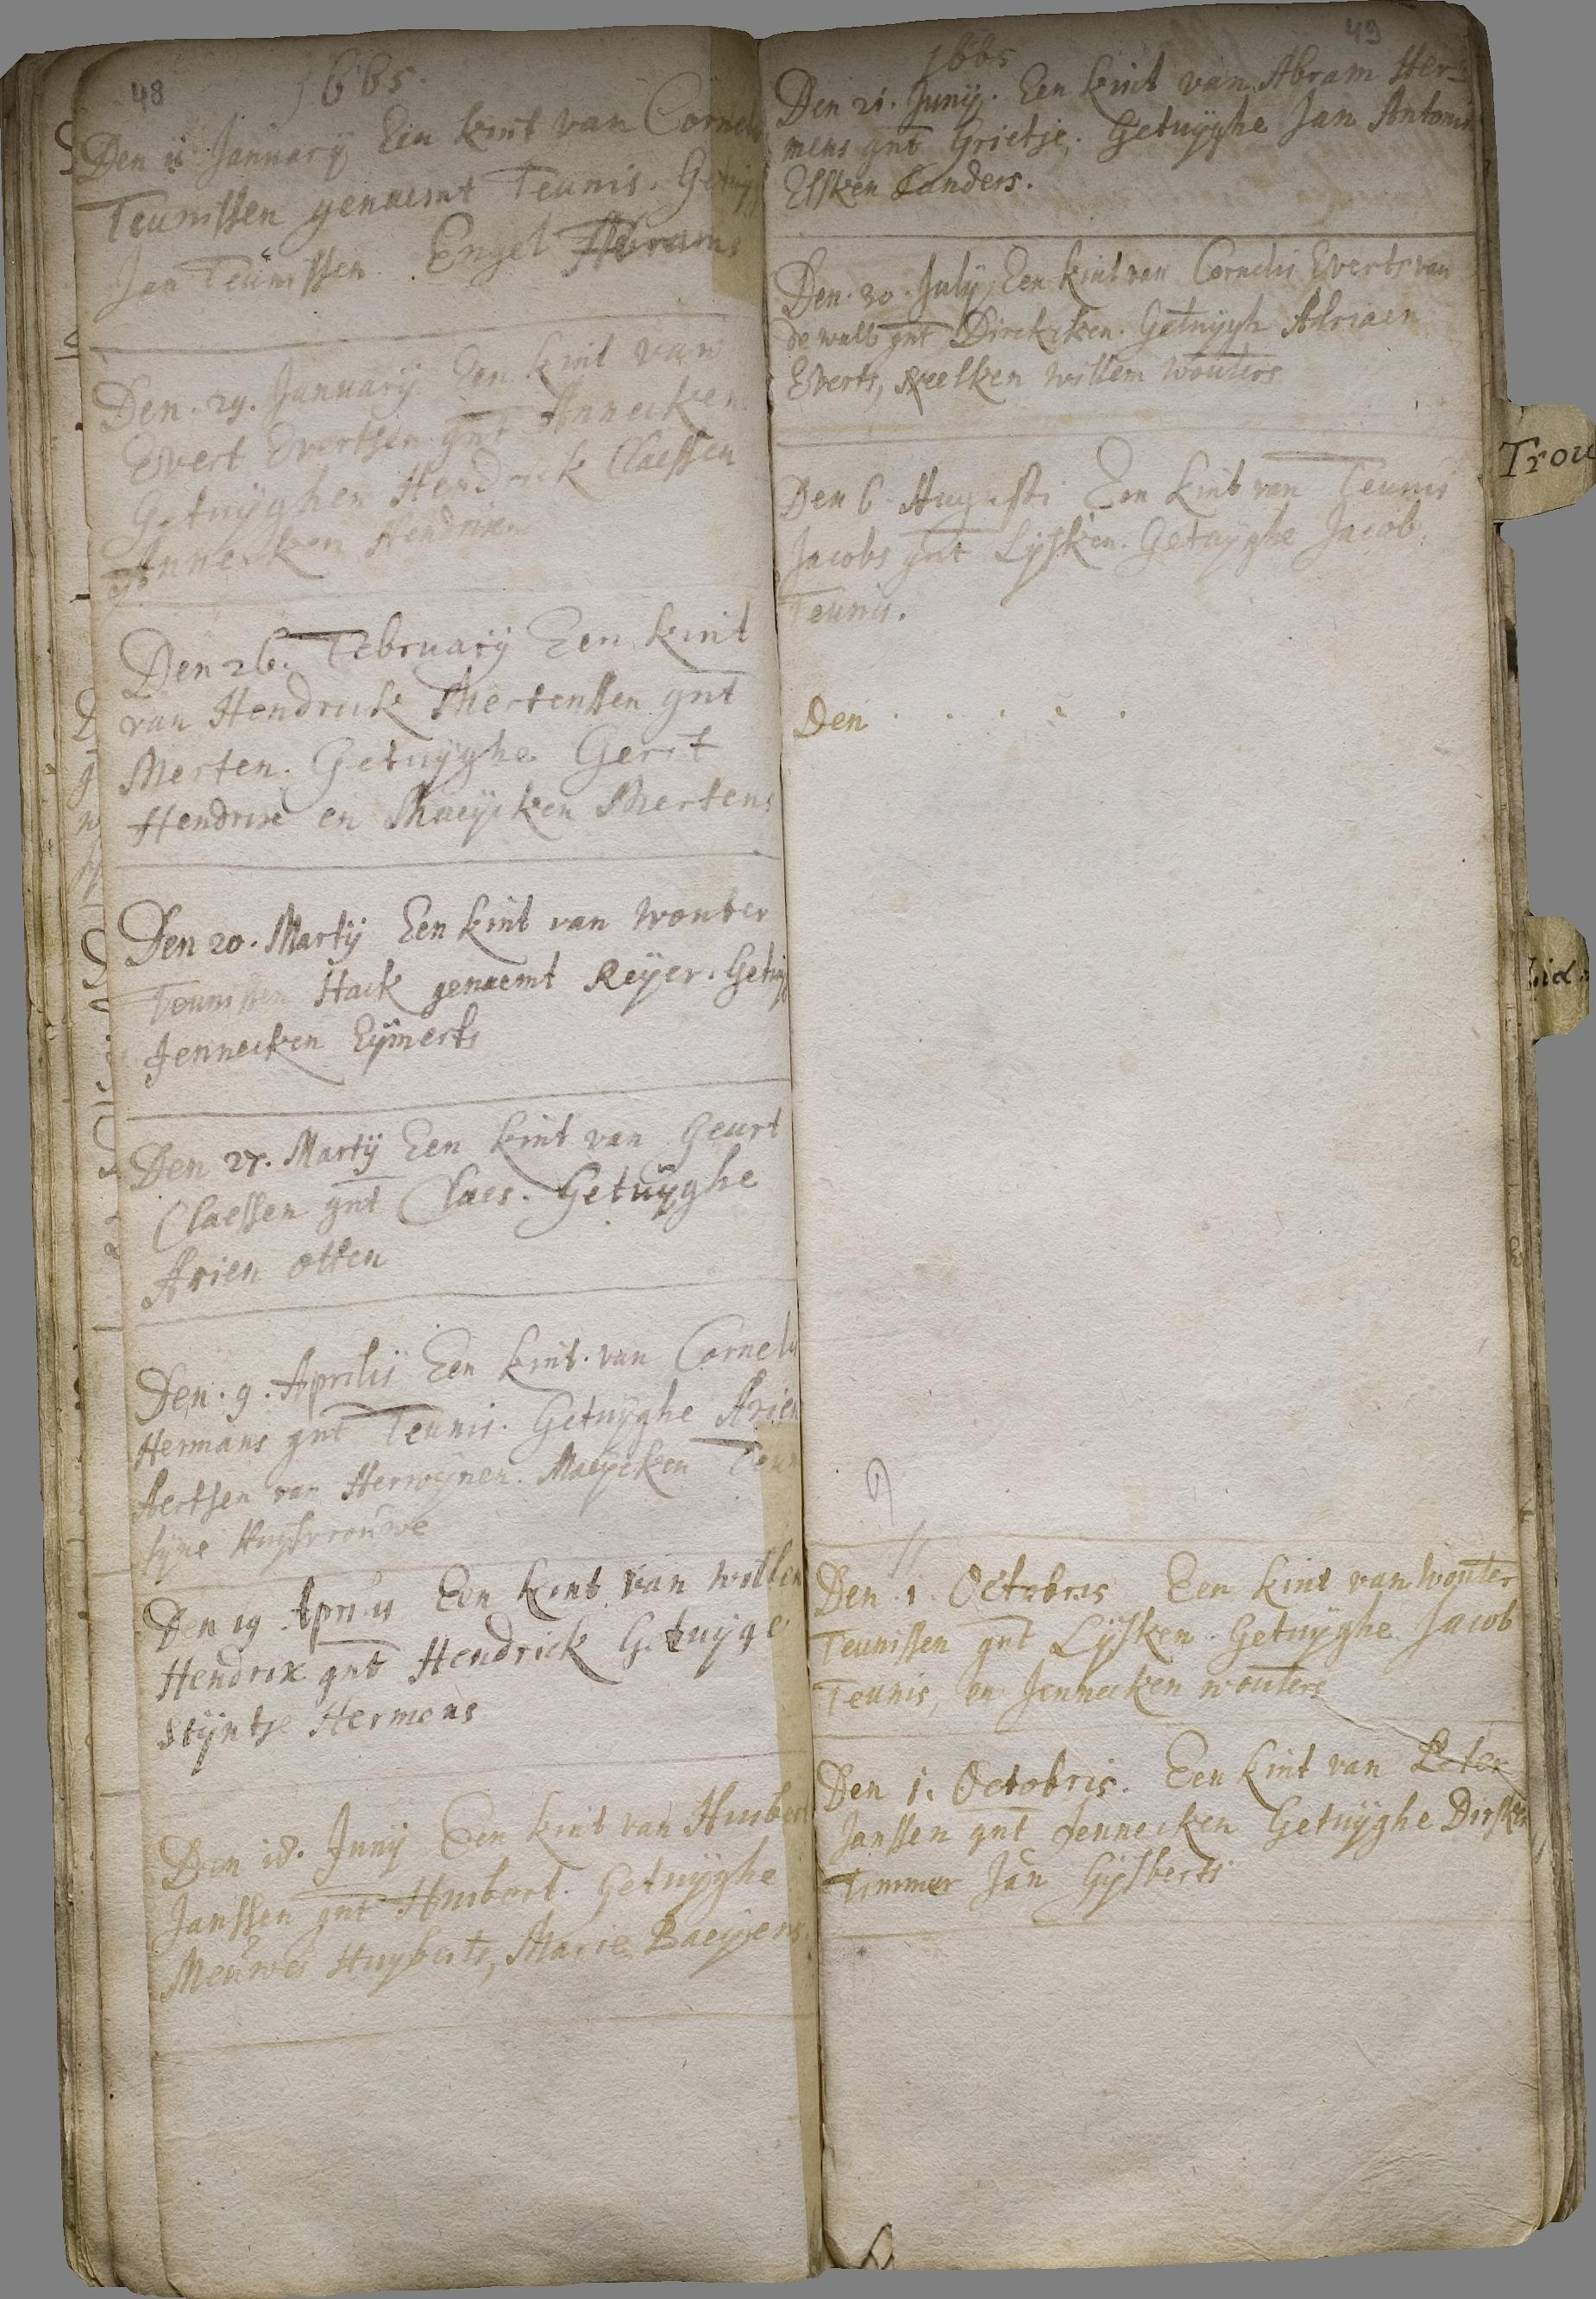 48
1665.
Den 11 January Een kint van Cornelis
Teunissen genaemt Teunis. Getuyg
Jan Teunissen. Engel Abrams
Den. 29. January Een kint van
Evert Evertsen gnt Annecken
Getuyghen Hendrick Claessen
Annecken Hendrix
Den 26. February Een kint
van Hendrick Mertenssen gnt
Merten. Getuyghe Gerrit
Hendrixe en Maeycken Mertens
Den 20. Martij Een kint van Wouter
Teunissen Hack genaemt Reyer. Getuyg
Jennecken Eymerts
Den 27. Martij Een kint van Geurt
Claessen gnt Claes. Getuyghe
Arien Otten
Den. 9. Aprilis Een kint van Cornelis
Hermans gnt Teunis. Getuyghe Arien
Aertsen van Herwynen. Maeycken Teun
syne Huysvrouwe
Den 19 Aprilis Een kint van Willem
Hendrix gnt Hendrick Getuyge
Styntje Hermens
Den 18. Junij Een kint van Huibert
Janssen gnt Huibert. Getuyghe
Meuwes Huyberts, Marie Baeyens
49
1665
Den 21. Junij. Een kint van Abram Her-
mens gnt Grietje. Getuyghe Jan Antonis
Elsken Sanders.
Den. 30. July Een kint van Cornelis Everts van
de wall gnt Dirckcken. Getuygh Adriaen
Everts, Neelken Willem Wouters
Den 6 Augusti Een kint van Teunis
Jacobs gnt Lysken. Getuyghe Jacob
Teunis.
Den . . . . .
Den. 1. Octobris Een kint van Wouter
Teunissen gnt Lysken. Getuyghe Jacob
Teunis, en Jennecken Wouters
Den 1. Octobris. Een kint van Peter
Janssen gnt Jennecken Getuyghe Dirsken
Timmer Jan Gysberts
Trou